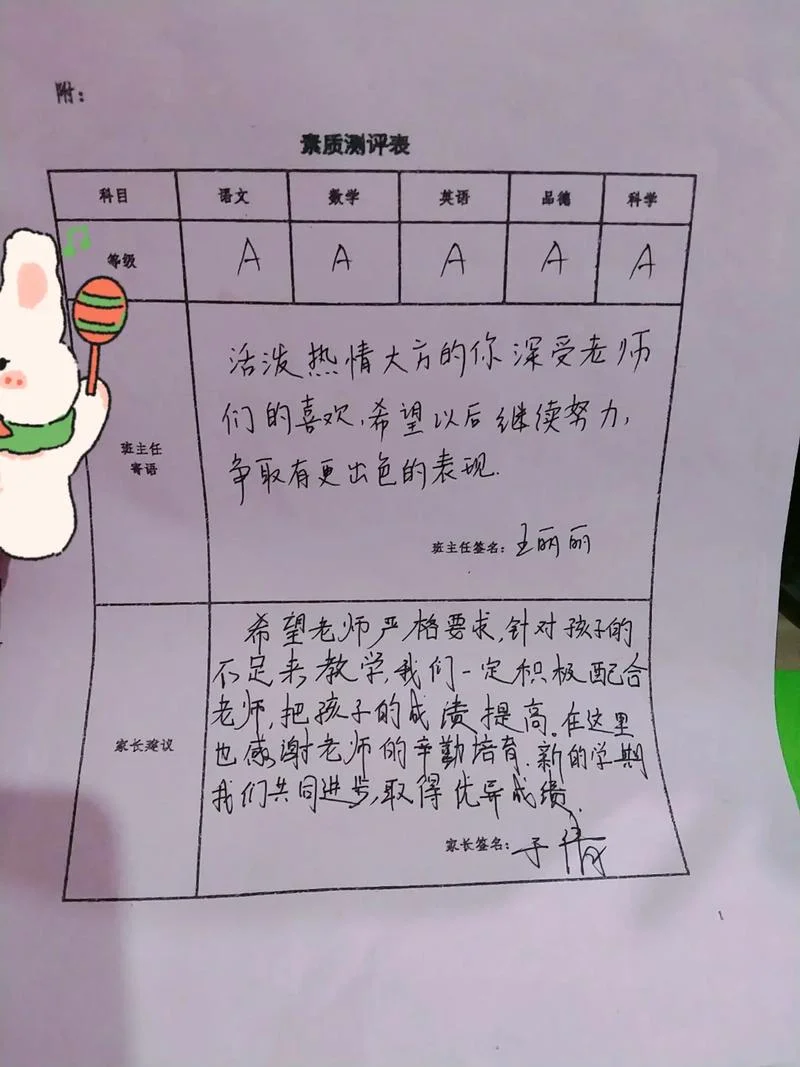 附：
素质测评表
科目 语文 数学 英语 品德 科学
等级 A A A A A
活泼热情大方的你深受老师
们的喜欢，希望以后继续努力，
争取有更出色的表现.
班主任
寄语
班主任签名：王丽丽
希望老师严格要求，针对孩子的
不足来教学，我们一定积极配合
老师，把孩子的成绩提高。在这里
也感谢老师的辛勤培育.新的学期
我们共同进步，取得优异成绩.
家长建议
家长签名：于倩
1